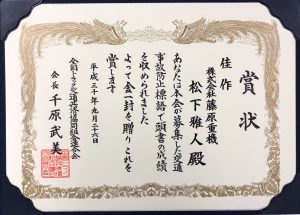 賞状
佳作
株式会社 藤原重機
松下雅人殿
あなたは本会が募集した交通
事故防止標語で頭書の成績
を収められました
よって金一封を贈りこれを
賞します
平成三十年九月二十六日
全国トラック交通共済協同組合連合会
会長 千原武美